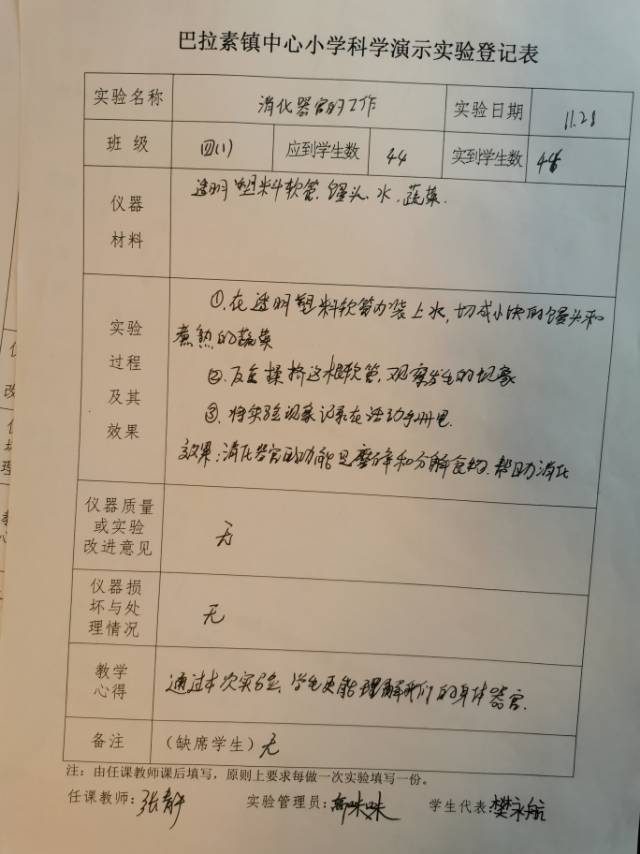 巴拉素镇中心小学科学演示实验登记表
实验名称 消化器官的工作 实验日期 11.21
班 级 四(1) 应到学生数 44 实到学生数 44
仪器 透明塑料软管、馒头、水、蔬菜.
材料
①.在透明塑料软管内装上水,切成小块的馒头和
实验 煮熟的蔬菜
过程 ②.反复揉挤这根软管,观察发生的现象
及其 ③.将实验现象记录在活动手册里.
效果 效果:消化器官的功能是磨碎和分解食物.帮助消化
仪器质量
或实验 无
改进意见
仪器损
坏与处 无
理情况
教学 通过本次实验、学生更能理解我们的身体器官.
心得
备注 (缺席学生) 无
注:由任课教师课后填写,原则上要求每做一次实验填写一份。
任课教师:张静 实验管理员: 学生代表:樊永航